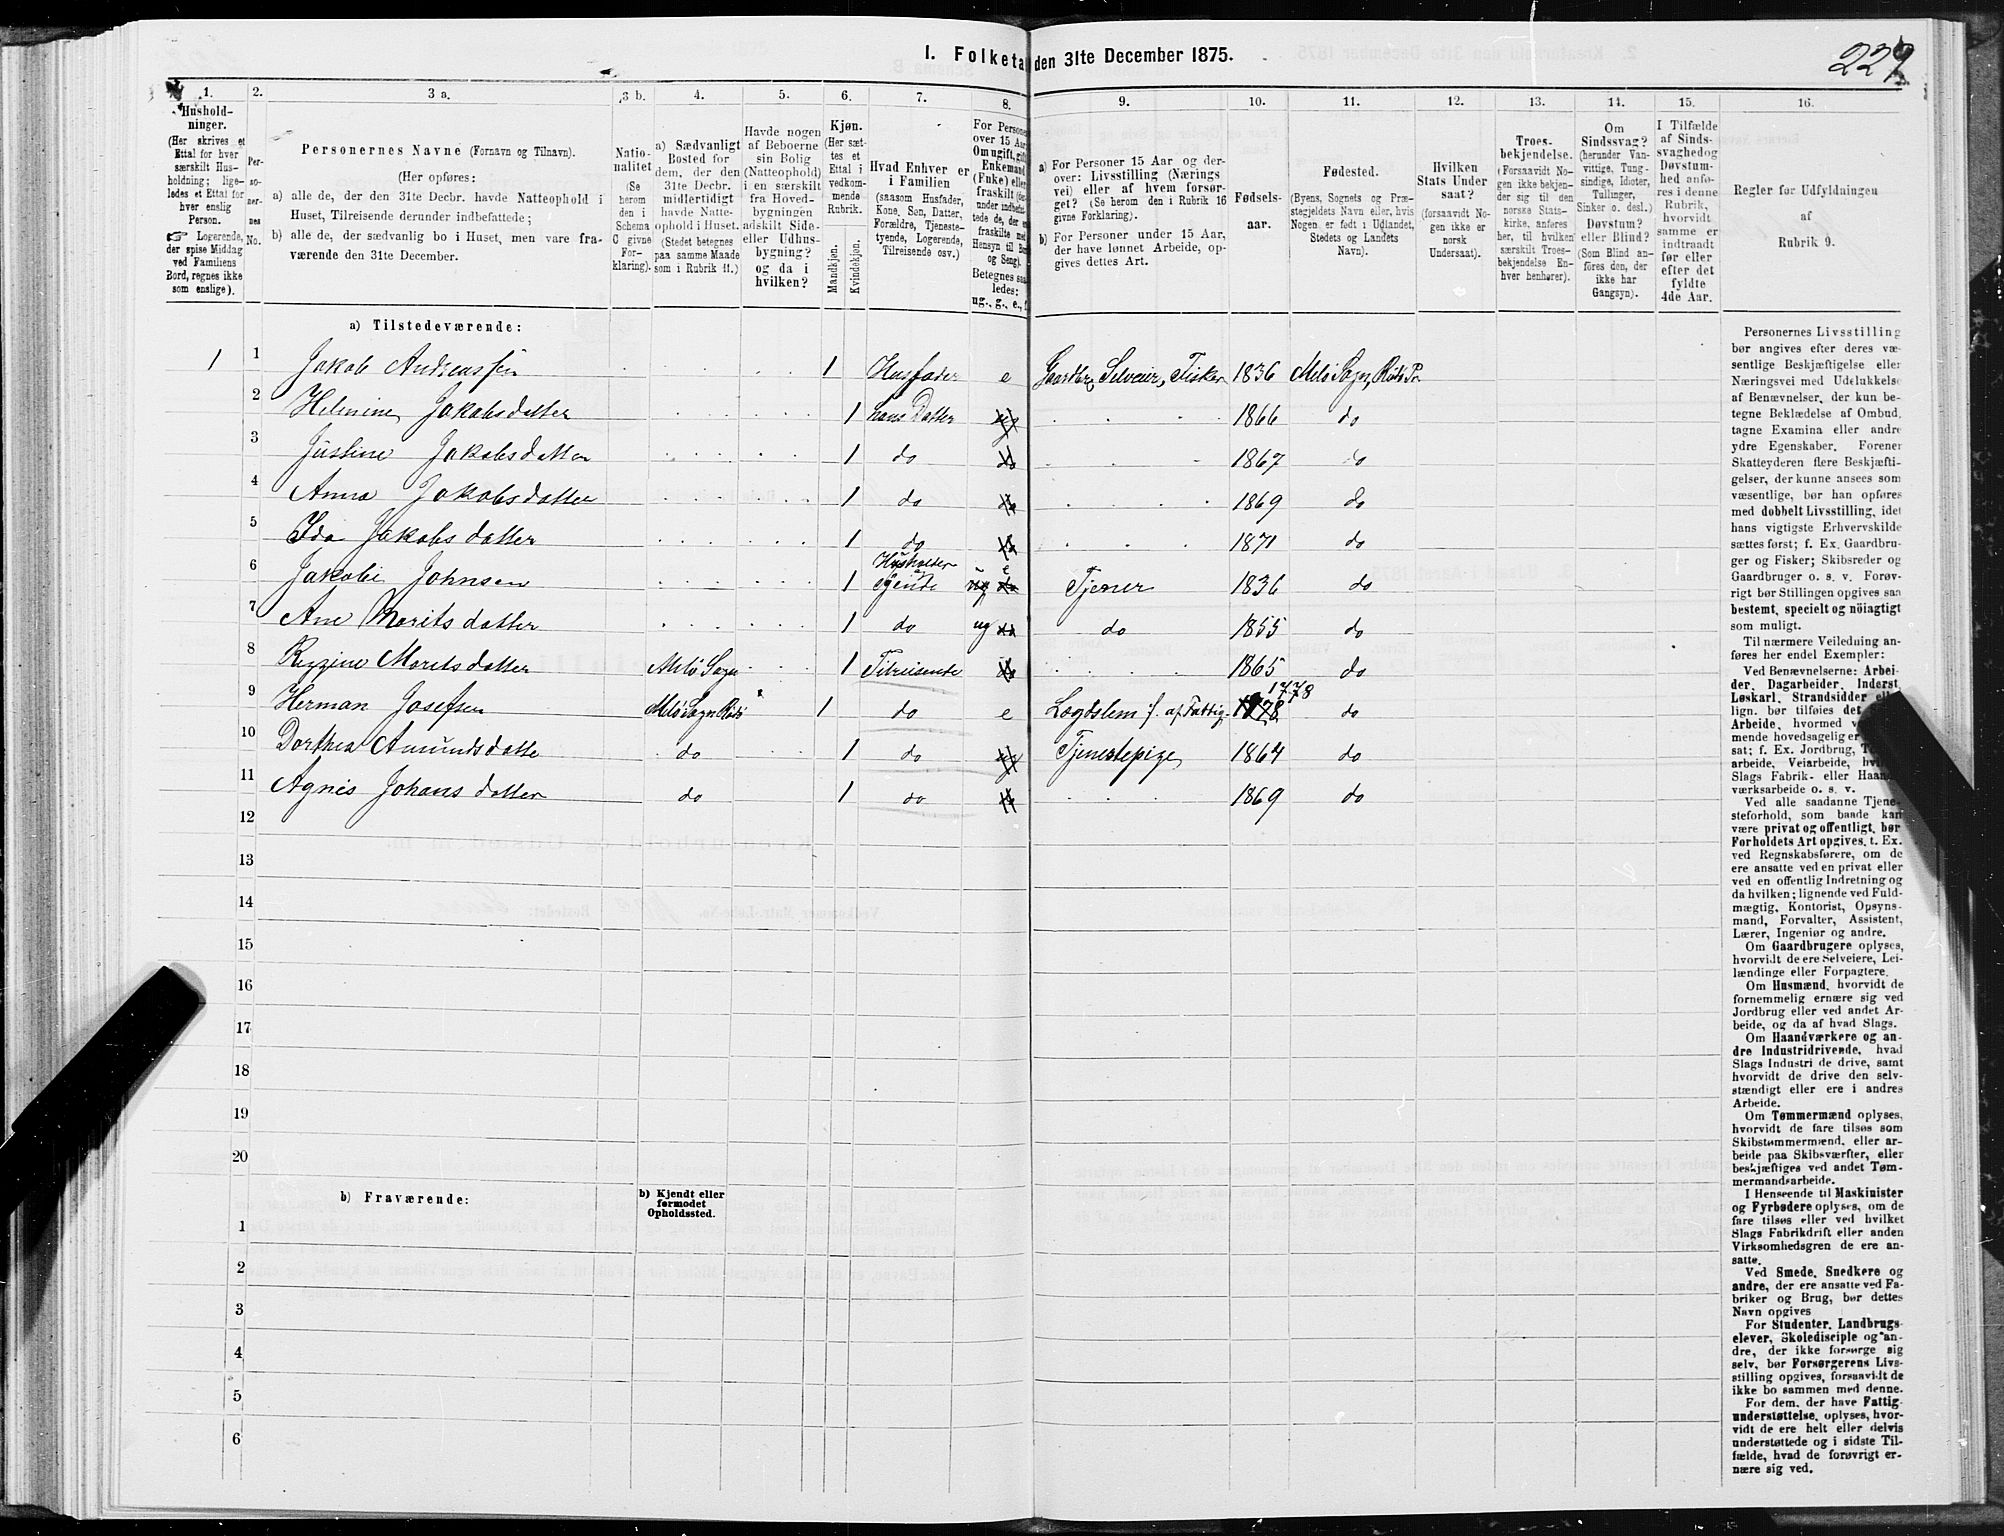 I. Folketa den 31te December 1875.
229
1. 2. 3 a. 3 b. 4. 5. 6. 7. 8. 9. 10. 11. 12. 13. 14. 15. 16.
Hushold-
ninger.
(Her skrives et
Ettal for hver
særskilt Hus-
holdning; lige-
ledes et Ettal for
hver enslig
Person.
☞ Logerende,
der spise Middag
ved Familiens
Bord, regnes ikke
som enslige).
Per-
so-
ner-
nes
No.
Personernes Navne (Fornavn og Tilnavn).
(Her opføres:
a) alle de, der den 31te Decbr. havde Natteophold i
Huset, Tilreisende derunder indbefattede;
b) alle de, der sædvanlig bo i Huset, men vare fra-
værende den 31te December.
Natio-
nalitet
(Se
herom
den i
Schema
C givne
For-
klaring).
a) Sædvanligt
Bosted for
dem, der den
31te Decbr.
midlertidigt
havde Natte-
ophold i Huset.
(Stedet betegnes
paa samme Maade
som i Rubrik 11.)
Havde nogen
af Beboerne
sin Bolig
(Natteophold)
i en særskilt
fra Hoved-
bygningen
adskilt Side-
eller Udhus-
bygning?
og da i
hvilken?
Kjøn.
(Her sæt-
tes et
Ettal i
vedkom-
mende
Rubrik.
Mandkjøn.
Kvindekjøn.
Hvad Enhver er
i Familien
(saasom Husfader,
Kone, Søn, Datter,
Forældre, Tjeneste-
tyende, Logerende,
Tilreisende osv.)
For Persone
over 15 Aar
Om ugift, gift
Enkemand
(Enke) eller
fraskilt
Betegnes saa
ledes:
ug., g., e., f.
a) For Personer 15 Aar og der-
over: Livsstilling (Nærings
vei) eller af hvem forsør-
get? (Se herom den i Rubrik 16
givne Forklaring).
b) For Personer under 15 Aar,
der have lønnet Arbeide, op-
gives dettes Art.
Fødsels-
aar.
Fødested.
(Byens, Sognets og Præ-
stegjeldets Navn eller, hvis
Nogen er født i Udlandet,
Stedets og Landets
Navn).
Hvilken
Stats Under
saat?
(forsaavidt No-
gen ikke er
norsk
Undersaat).
Troes-
bekjendelse.
(Forsaavidt No-
gen ikke bekjen-
der sig til den
norske Stats-
kirke, anføres
her, til hvilken
særskilt Troes-
bekjendelse En-
hver henhører).
Om
Sindssvag?
(herunder Van-
vittige, Tung-
sindige, Idioter,
Tullinger,
Sinker o. desl.)
Døvstum?
eller Blind?
(Som Blind an-
føres den, der
ikke har
Gangsyn).
I Tilfælde
af Sinds-
svaghed og
Døvstum-
hed anfø-
res i denne
Rubrik,
hvorvidt
samme er
indtraadt
før eller
efter det
fyldte
4de Aar.
Regler for Udfyldningen
af
Rubrik 9.
a) Tilstedeværende:
1 1 Jakob Andreassen 1 Husfader e Gaardbr. Selveier, Fisker 1836 Melø Sogn, Rødø Pr.
2 Helmine Jakobsdatter 1 hans Datter ug 1866 do
3 Justine Jakobsdatter 1 do do 1867 do
4 Anna Jakobsdatter 1 do do 1869 do
5 Ida Jakobsdatter 1 do do 1871 do
6 Jakobie Johnsen 1 Husholder tyende e Tjener 1836 do
7 Ane Moritsdatter 1 do ug do do 1855 do
8 Regine Moritsdatter Melø Sogn 1 Tilreisende do 1865 do
9 Herman Josefsen Melø Sogn Rødø 1 do e Lægdslem f. af Fattig. 1778 do
10 Dorthea Amundsdatte do 1 do ug Tjenestepige 1864 do
11 Agnis Johansdatter do 1 do do 1869 do
12
13
14
15
16
17
18
19
20
b) Fraværende:
b) Kjendt eller
formodet
Opholdssted.
1
2
3
4
5
6
Personernes Livsstilling
bør angives efter deres væ-
sentlige Beskjæftigelse eller
Næringsvei med Udelukkelse
af Benævnelser, der kun be-
tegne Beklædelse af Ombud,
tagne Examina eller andre
ydre Egenskaber. Forener
Skatteyderen flere Beskjæfti-
gelser, der kunne ansees som
væsentlige, bør han opføres
med dobbelt Livsstilling, idet
hans vigtigste Erhvervskilde
sættes først; f. Ex. Gaardbru-
ger og Fisker; Skibsreder og
Gaardbruger o. s. v. Forøv-
rigt bør Stillingen opgives saa
bestemt, specielt og nöiagtigt
som muligt.
Til nærmere Veiledning an-
føres her endel Exempler:
Ved Benævnelserne: Arbei-
der, Dagarbeider, Inderst,
Løskarl, Strandsidder eller
lign. bør tilføies det
Arbeide, hvormed
mende hovedsagelig er
sat; f. Ex. Jordbrug,
arbeide, Veiarbeide,
Slags Fabrik- eller Haand-
værksarbeide o. s. v.
Ved alle saadanne Tjene-
steforhold, som baade kan
være privat og offentligt, bør
Forholdets Art opgives, t. Ex.
ved Regnskabsførere, om de
ere ansatte ved en privat eller
ved en offentlig Indretning og
da hvilken; lignende ved Fuld-
mægtig, Kontorist, Opsyns-
mand, Forvalter, Assistent,
Lærer, Ingeniør og andre.
Om Gaardbrugere oplyses,
hvorvidt de ere Selveiere, Lei-
lændinge eller Forpagtere.
Om Husmænd, hvorvidt de
fornemmelig ernære sig ved
Jordbrug eller ved andet Ar-
beide, og da af hvad Slags.
Om Haandværkere og an-
dre Industridrivende, hvad
Slags Industri de drive, samt
hvorvidt de drive den selv-
stændigt eller ere i andres
Arbeide.
Om Tømmermænd oplyses,
hvorvidt de fare tilsøs som
Skibstømmermænd, eller ar-
beide paa Skibsværfter, eller
beskjæftiges ved andet Tøm-
mermandsarbeide.
I Henseende til Maskinister
og Fyrbødere oplyses, om de
fare tilsøs eller ved hvilket
Slags Fabrikdrift eller anden
Virksomhedsgren de ere an-
satte.
Ved Smede, Snedkere og
andre, der ere ansatte ved Fa-
briker og Brug, bør dettes
Navn opgives
For Studenter, Landbrugs-
elever, Skoledisciple og an-
dre, der ikke forsørge sig
selv, bør Forsørgerens Livs-
stilling opgives, forsaavidt de
ikke bo sammen med denne.
For dem, der have Fattig-
understøttelse, oplyses, hvor-
vidt de ere helt eller delvis
understøttede og i sidste Til-
fælde, hvad de forøvrigt er-
nære sig ved.